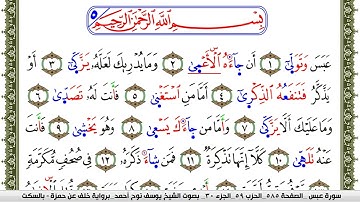 بِسْمِ اللَّهِ الرَّحْمَٰنِ الرَّحِيمِ
عَبَسَ وَتَوَلَّىٰ ١ أَن جَآءَهُ الْأَعْمَىٰ ٢ وَمَا يُدْرِيكَ لَعَلَّهُ يَزَّكَّىٰ ٣ أَوْ
يَذَّكَّرُ فَتَنفَعُهُ الذِّكْرَىٰ ٤ أَمَّا مَنِ اسْتَغْنَىٰ ٥ فَأَنتَ لَهُ تَصَدَّىٰ ٦
وَمَا عَلَيْكَ أَلَّا يَزَّكَّىٰ ٧ وَأَمَّا مَن جَآءَكَ يَسْعَىٰ ٨ وَهُوَ يَخْشَىٰ ٩ فَأَنتَ
عَنْهُ تَلَهَّىٰ ١٠ كَلَّآ إِنَّهَا تَذْكِرَةٌ ١١ فَمَن شَآءَ ذَكَرَهُ ١٢ فِي صُحُفٍ مُّكَرَّمَةٍ
سورة عبس . الصفحة ٥٨٥ . الحزب ٥٩ . الجزء ٣٠ . بصوت الشيخ يوسف نوح أحمد . برواية خلف عن حمزة - بالسكت